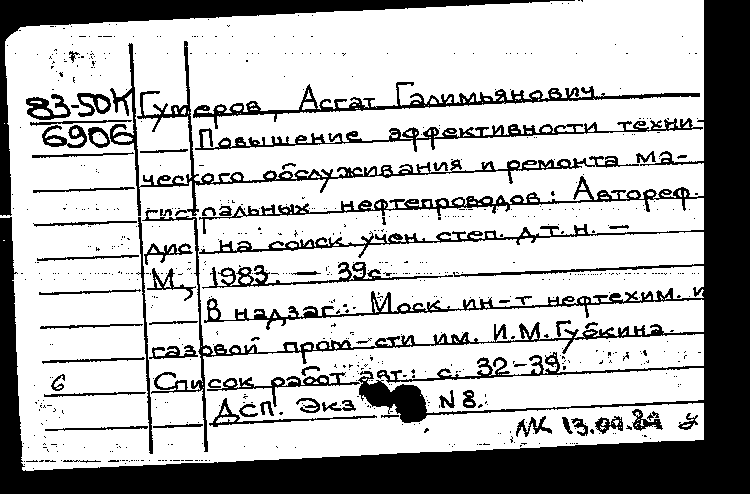 83-50К Гумеров, Асгат Галимьянович.
6906 Повышение эффективности техни-
ческого обслуживания и ремонта ма-
гистральных нефтепроводов: Автореф.
дис. на соиск. учен. степ. д.т.н. —
М., 1983. — 39с.
В надзаг.: Моск. ин-т нефтехим. и
газовой пром-сти им. И.М.Губкина.
6 Список работ авт.: с. 32-39.
ДСП. Экз N 8.
МК